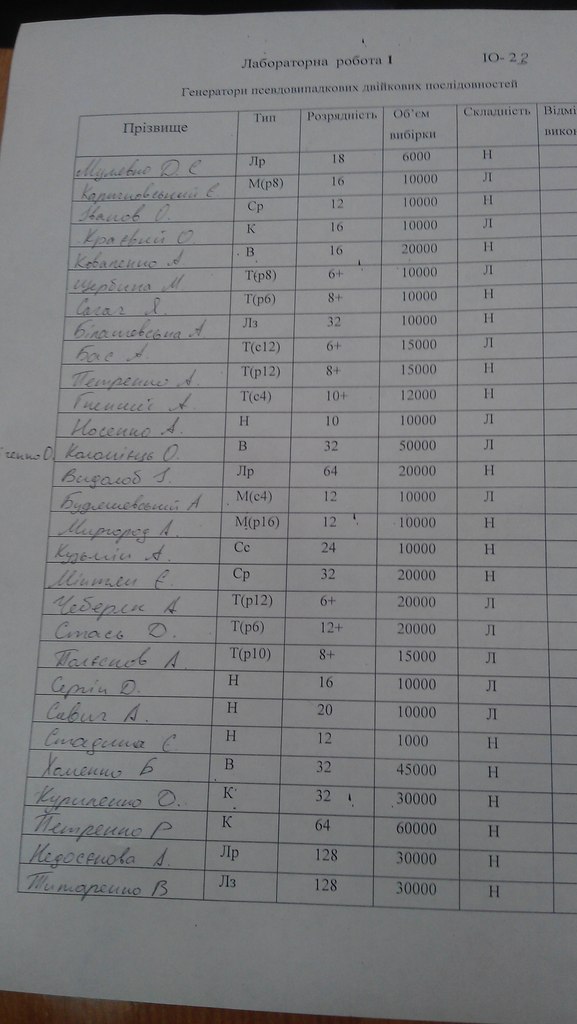 Лабораторна робота 1 ІО- 22
Генератори псевдовипадкових двійкових послідовностей
Прізвище Тип Розрядність Об'єм вибірки Складність Відмі викон
Лр 18 6000 Н
М(р8) 16 10000 Л
Іванов О. Ср 12 10000 Н
Краєвий О К 16 10000 Л
Коваленко А В 16 20000 Н
Щербина М Т(р8) 6+ 10000 Л
Сагач Я. Т(р6) 8+ 10000 Н
Білашевська А Лз 32 10000 Н
Бас А. Т(с12) 6+ 15000 Л
Петренко А. Т(р12) 8+ 15000 Н
А Т(с4) 10+ 12000 Н
Носенко А. Н 10 10000 Л
Коломієць О. В 32 50000 Л
Видолоб І. Лр 64 20000 Н
А М(с4) 12 10000 Л
Миргород А. М(р16) 12 10000 Н
Кузьмін А. Сс 24 10000 Н
Є. Ср 32 20000 Н
Чеберяк А Т(р12) 6+ 20000 Л
Стась Д. Т(р6) 12+ 20000 Л
А. Т(р10) 8+ 15000 Л
Сергін Д. Н 16 10000 Л
Савич А. Н 20 10000 Л
Є. Н 12 1000 Н
Хоменко Б В 32 45000 Н
Куриленко О. К 32 30000 Н
Петренко Р К 64 60000 Н
Недосєнова А. Лр 128 30000 Н
Титаренко В Лз 128 30000 Н